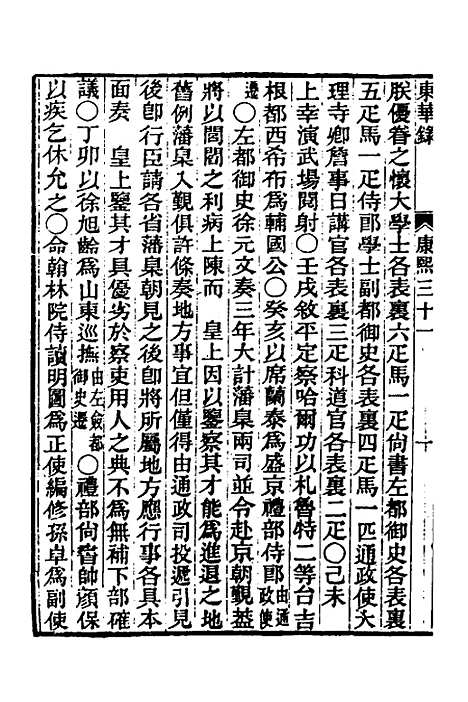 東華錄 康熙三十一 十
朕優眷之懷大學士各表裏六疋馬一疋尚書左都御史各表裏
五疋馬一疋侍郎學士副都御史各表裏四疋馬一匹通政使大
理寺卿詹事日講官各表裏三疋科道官各表裏二疋〇己未
上幸演武場閱射〇壬戌敘平定察哈爾功以札魯特二等台吉
根都西希布為輔國公〇癸亥以席蘭泰為盛京禮部侍郎由通政使
遷〇左都御史徐元文奏三年大計藩臬兩司並令赴京朝覲蓋
將以閭閻之利病上陳而 皇上因以鑒察其才能為進退之地
舊例藩臬入覲俱許條奏地方事宜但僅得由通政司投遞引見
後卽行臣請各省藩臬朝見之後卽將所屬地方應行事各具本
面奏 皇上鑒其才具優劣於察吏用人之典不為無補下部確
議〇丁卯以徐旭齡為山東巡撫由左僉都御史遷〇禮部尚書帥顏保
以疾乞休允之〇命翰林院侍讀明圖為正使編修孫卓為副使